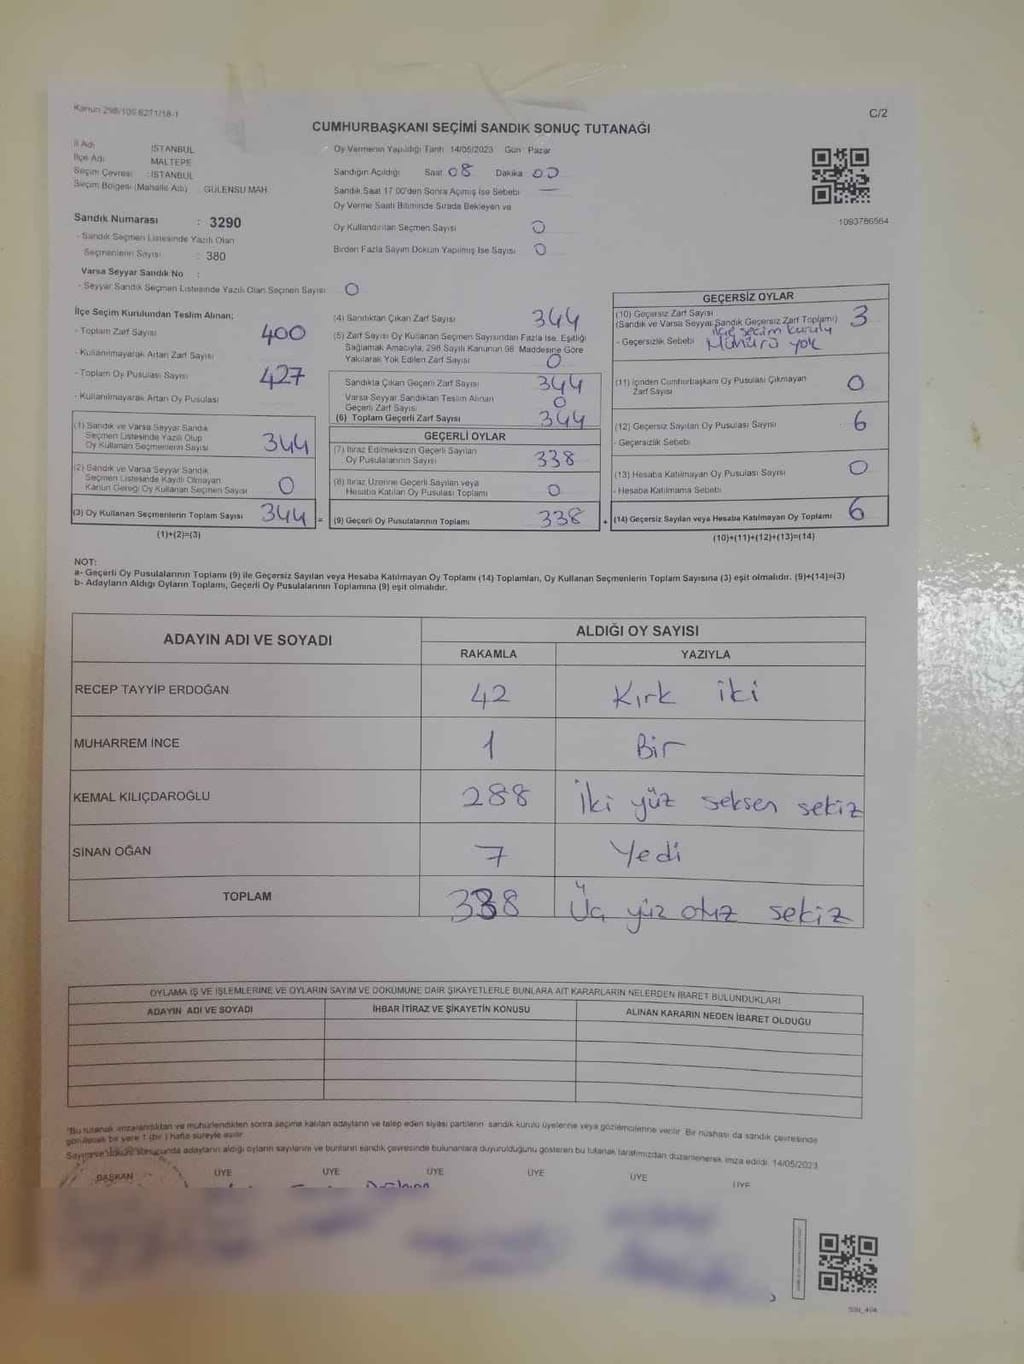 Kanun 298/105 6271/18-1
C/2
CUMHURBAŞKANI SEÇİMİ SANDIK SONUÇ TUTANAĞI
İl Adı : İSTANBUL
İlçe Adı : MALTEPE
Seçim Çevresi : İSTANBUL
Seçim Bölgesi (Mahalle Adı) : GÜLENSU MAH.
Sandık Numarası : 3290
- Sandık Seçmen Listesinde Yazılı Olan
Seçmenlerin Sayısı : 380
Varsa Seyyar Sandık No :
- Seyyar Sandık Seçmen Listesinde Yazılı Olan Seçmen Sayısı 0
Oy Vermenin Yapıldığı Tarih 14/05/2023 Gün Pazar
Sandığın Açıldığı Saat 08 Dakika 00
Sandık Saat 17.00'den Sonra Açılmış İse Sebebi —
Oy Verme Saati Bitiminde Sırada Bekleyen ve
Oy Kullandırılan Seçmen Sayısı 0
Birden Fazla Sayım Döküm Yapılmış İse Sayısı 0
1093786564
İlçe Seçim Kurulundan Teslim Alınan;
- Toplam Zarf Sayısı 400
- Kullanılmayarak Artan Zarf Sayısı
- Toplam Oy Pusulası Sayısı 427
- Kullanılmayarak Artan Oy Pusulası
(1) Sandık ve Varsa Seyyar Sandık
Seçmen Listesinde Yazılı Olup
Oy Kullanan Seçmenlerin Sayısı 344
(2) Sandık ve Varsa Seyyar Sandık
Seçmen Listesinde Kayıtlı Olmayan
Kanun Gereği Oy Kullanan Seçmen Sayısı 0
(3) Oy Kullanan Seçmenlerin Toplam Sayısı 344 =
(1)+(2)=(3)
(4) Sandıktan Çıkan Zarf Sayısı 344
(5) Zarf Sayısı Oy Kullanan Seçmen Sayısından Fazla İse, Eşitliği
Sağlamak Amacıyla, 298 Sayılı Kanunun 98. Maddesine Göre
Yakılarak Yok Edilen Zarf Sayısı 0
Sandıkta Çıkan Geçerli Zarf Sayısı 344
Varsa Seyyar Sandıktan Teslim Alınan
Geçerli Zarf Sayısı 0
(6) Toplam Geçerli Zarf Sayısı 344
GEÇERLİ OYLAR
(7) İtiraz Edilmeksizin Geçerli Sayılan
Oy Pusulalarının Sayısı 338
(8) İtiraz Üzerine Geçerli Sayılan veya
Hesaba Katılan Oy Pusulası Toplamı 0
(9) Geçerli Oy Pusulalarının Toplamı 338 +
GEÇERSİZ OYLAR
(10) Geçersiz Zarf Sayısı
(Sandık ve Varsa Seyyar Sandık Geçersiz Zarf Toplamı) 3
- Geçersizlik Sebebi ilçe seçim kurulu
Mührü yok
(11) İçinden Cumhurbaşkanı Oy Pusulası Çıkmayan
Zarf Sayısı 0
(12) Geçersiz Sayılan Oy Pusulası Sayısı 6
- Geçersizlik Sebebi
(13) Hesaba Katılmayan Oy Pusulası Sayısı 0
- Hesaba Katılmama Sebebi
(14) Geçersiz Sayılan veya Hesaba Katılmayan Oy Toplamı 6
(10)+(11)+(12)+(13)=(14)
NOT:
a- Geçerli Oy Pusulalarının Toplamı (9) ile Geçersiz Sayılan veya Hesaba Katılmayan Oy Toplamı (14) Toplamları, Oy Kullanan Seçmenlerin Toplam Sayısına (3) eşit olmalıdır. (9)+(14)=(3)
b- Adayların Aldığı Oyların Toplamı, Geçerli Oy Pusulalarının Toplamına (9) eşit olmalıdır.
ADAYIN ADI VE SOYADI
ALDIĞI OY SAYISI
RAKAMLA YAZIYLA
RECEP TAYYİP ERDOĞAN 42 Kırk iki
MUHARREM İNCE 1 Bir
KEMAL KILIÇDAROĞLU 288 İki yüz seksen sekiz
SİNAN OĞAN 7 Yedi
TOPLAM 338 Üç yüz otuz sekiz
OYLAMA İŞ VE İŞLEMLERİNE VE OYLARIN SAYIM VE DÖKÜMÜNE DAİR ŞİKAYETLERLE BUNLARA AİT KARARLARIN NELERDEN İBARET BULUNDUKLARI
ADAYIN ADI VE SOYADI İHBAR İTİRAZ VE ŞİKAYETİN KONUSU ALINAN KARARIN NEDEN İBARET OLDUĞU
*Bu tutanak imzalandıktan ve mühürlendikten sonra seçime katılan adayların ve talep eden siyasi partilerin sandık kurulu üyelerine veya gözlemcilerine verilir. Bir nüshası da sandık çevresinde
görülecek bir yere 1 (bir) hafta süreyle asılır.
Sayım ve döküm sonucunda adayların aldığı oyların sayılarını ve bunların sandık çevresinde bulunanlara duyurulduğunu gösteren bu tutanak tarafımızdan düzenlenerek imza edildi. 14/05/2023
BAŞKAN ÜYE ÜYE ÜYE ÜYE ÜYE ÜYE